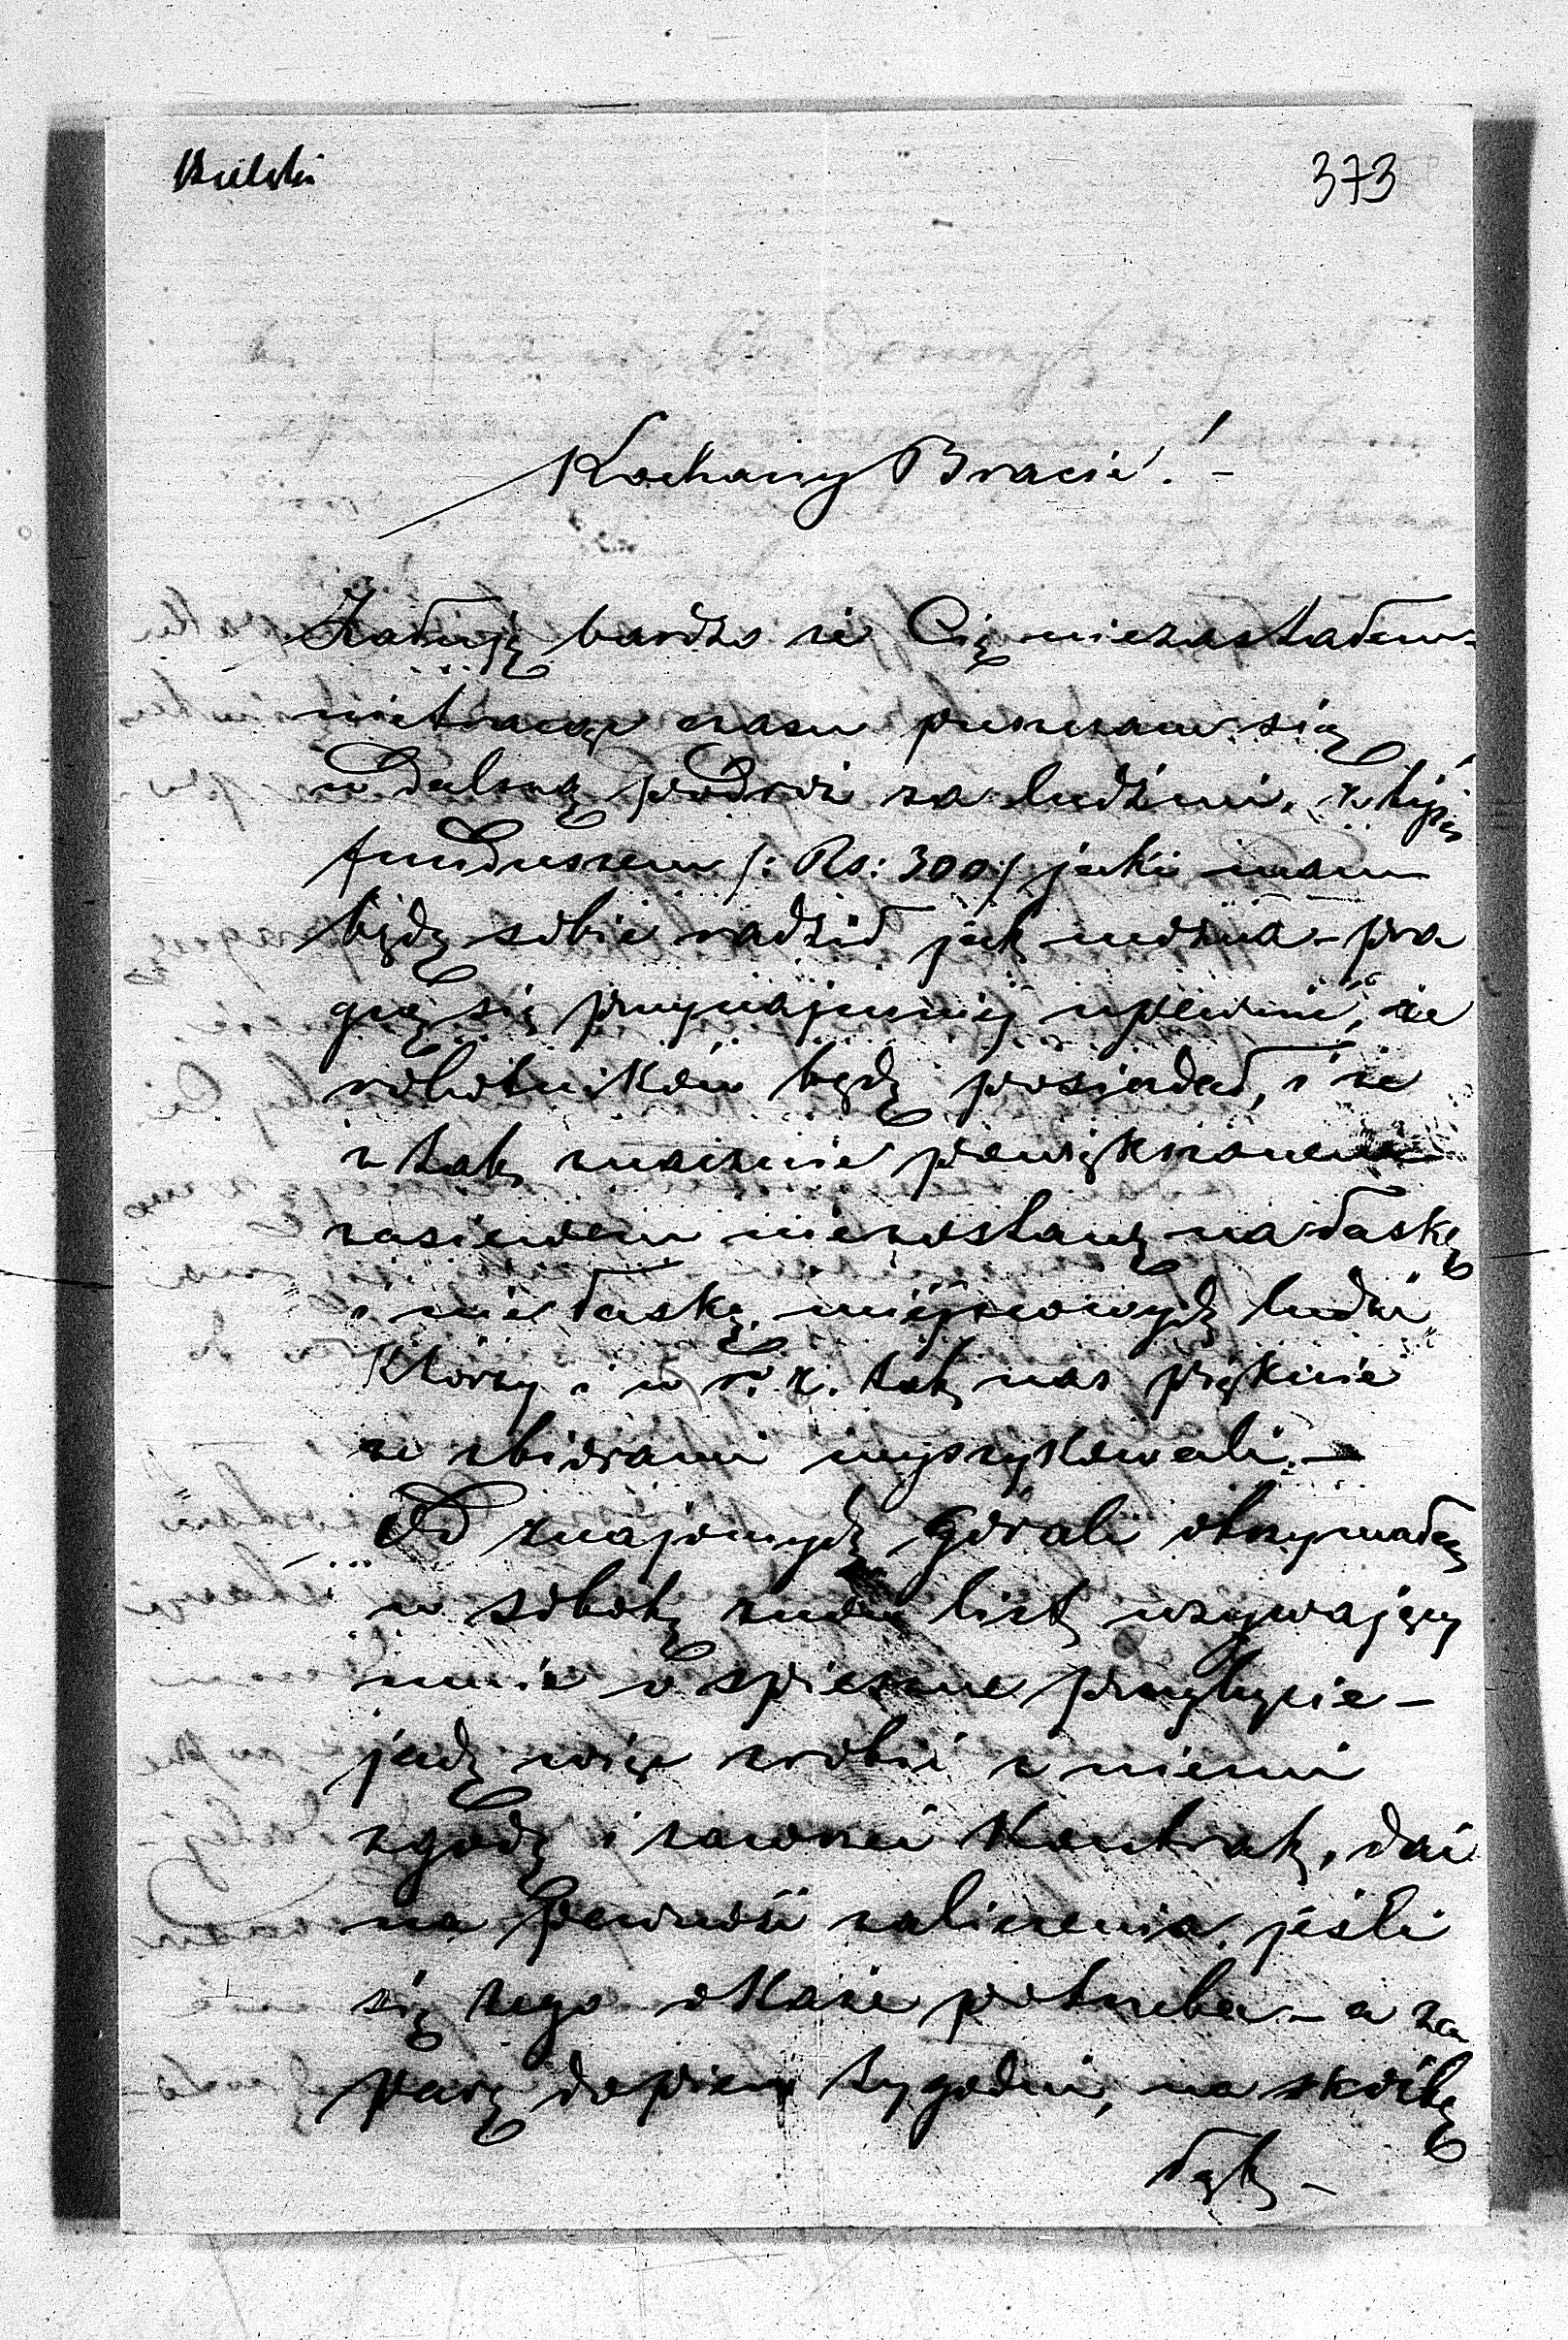 Bielski
373
Kochany Bracie! –
Żałuję bardzo że Cię niezastałem –
nietracąc czasu puszczam się
w dalszą podróż za ludźmi, z tym
funduszem /: Rs: 300 :/ jaki mam
będę sobie radził jak można – pra
gnę się przynajmniej upewnić, że
robotników będę posiadał, i że
z tak znacznie powiększonem
zasiewem niezostanę na łaskę
i niełaskę miejscowych ludzi
którzy i w r. z. tak nas pięknie
ze zbiorami wyszykowali. –
Od znajomych górali otrzymałem
w sobotę znów list wzywający
mnie o spieszne przybycie –
jadę więc zrobić z niemi
zgodę i zawrzeć kontrakt, dać
na pewność zaliczenia, jeśli
się tego okaże potrzeba – a za
parę dopiero tygodni, na skośbę
łąk –